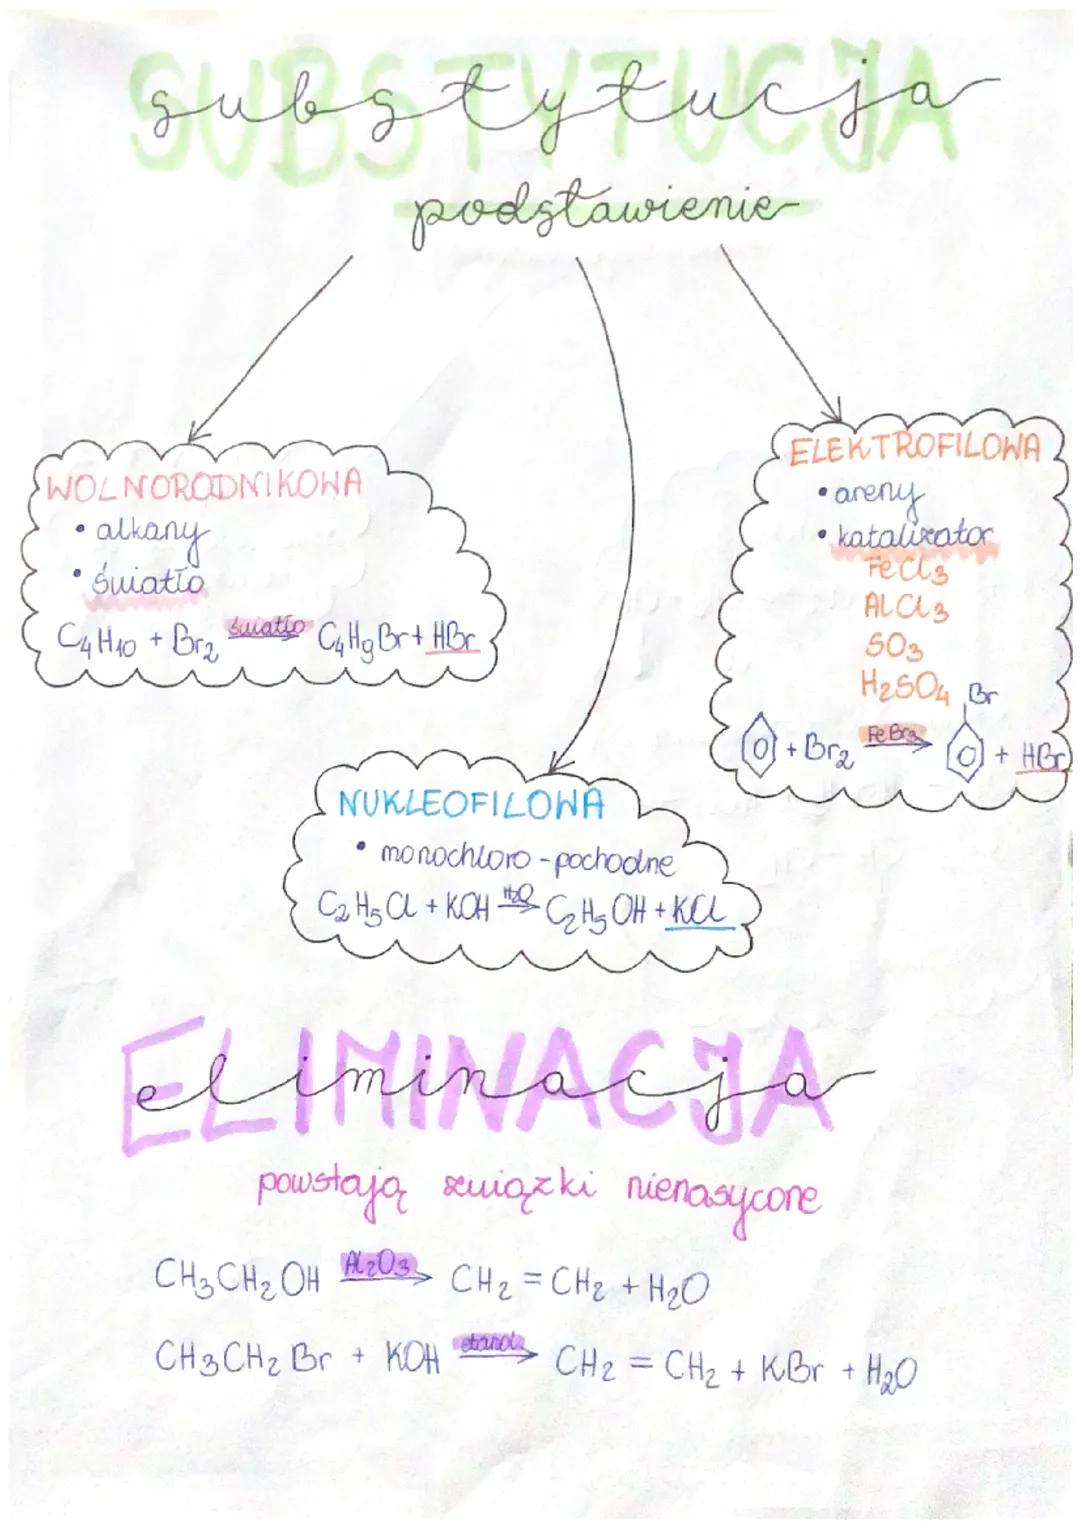 SUBSTYTUCJA
substytucja
podstawienie
WOLNORODNIKOWA
• alkany
• światło
C₄H₁₀ + Br₂ światło C₄H₉Br + HBr
ELEKTROFILOWA
• areny
• katalizator
FeCl₃
AlCl₃
SO₃
H₂SO₄
Br
+ Br₂ FeBr₃ + HBr
NUKLEOFILOWA
• monochloro-pochodne
C₂H₅Cl + KOH H₂O C₂H₅OH + KCl
ELIMINACJA
eliminacja
powstają związki nienasycone
CH₃CH₂OH Al₂O₃ → CH₂ = CH₂ + H₂O
CH₃CH₂Br + KOH etanol → CH₂ = CH₂ + KBr + H₂O